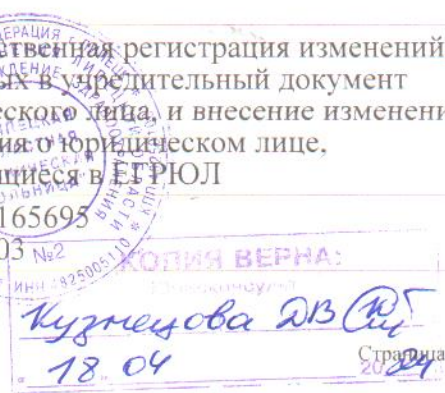 ственная регистрация изменений
ых в учредительный документ
еского лица, и внесение изменени
ия о юридическом лице,
щиеся в ЕГРЮЛ
165695
03
№2
КОПИЯ ВЕРНА:
ИНН
Кузнецова ДВ
18 04 2024
Страница